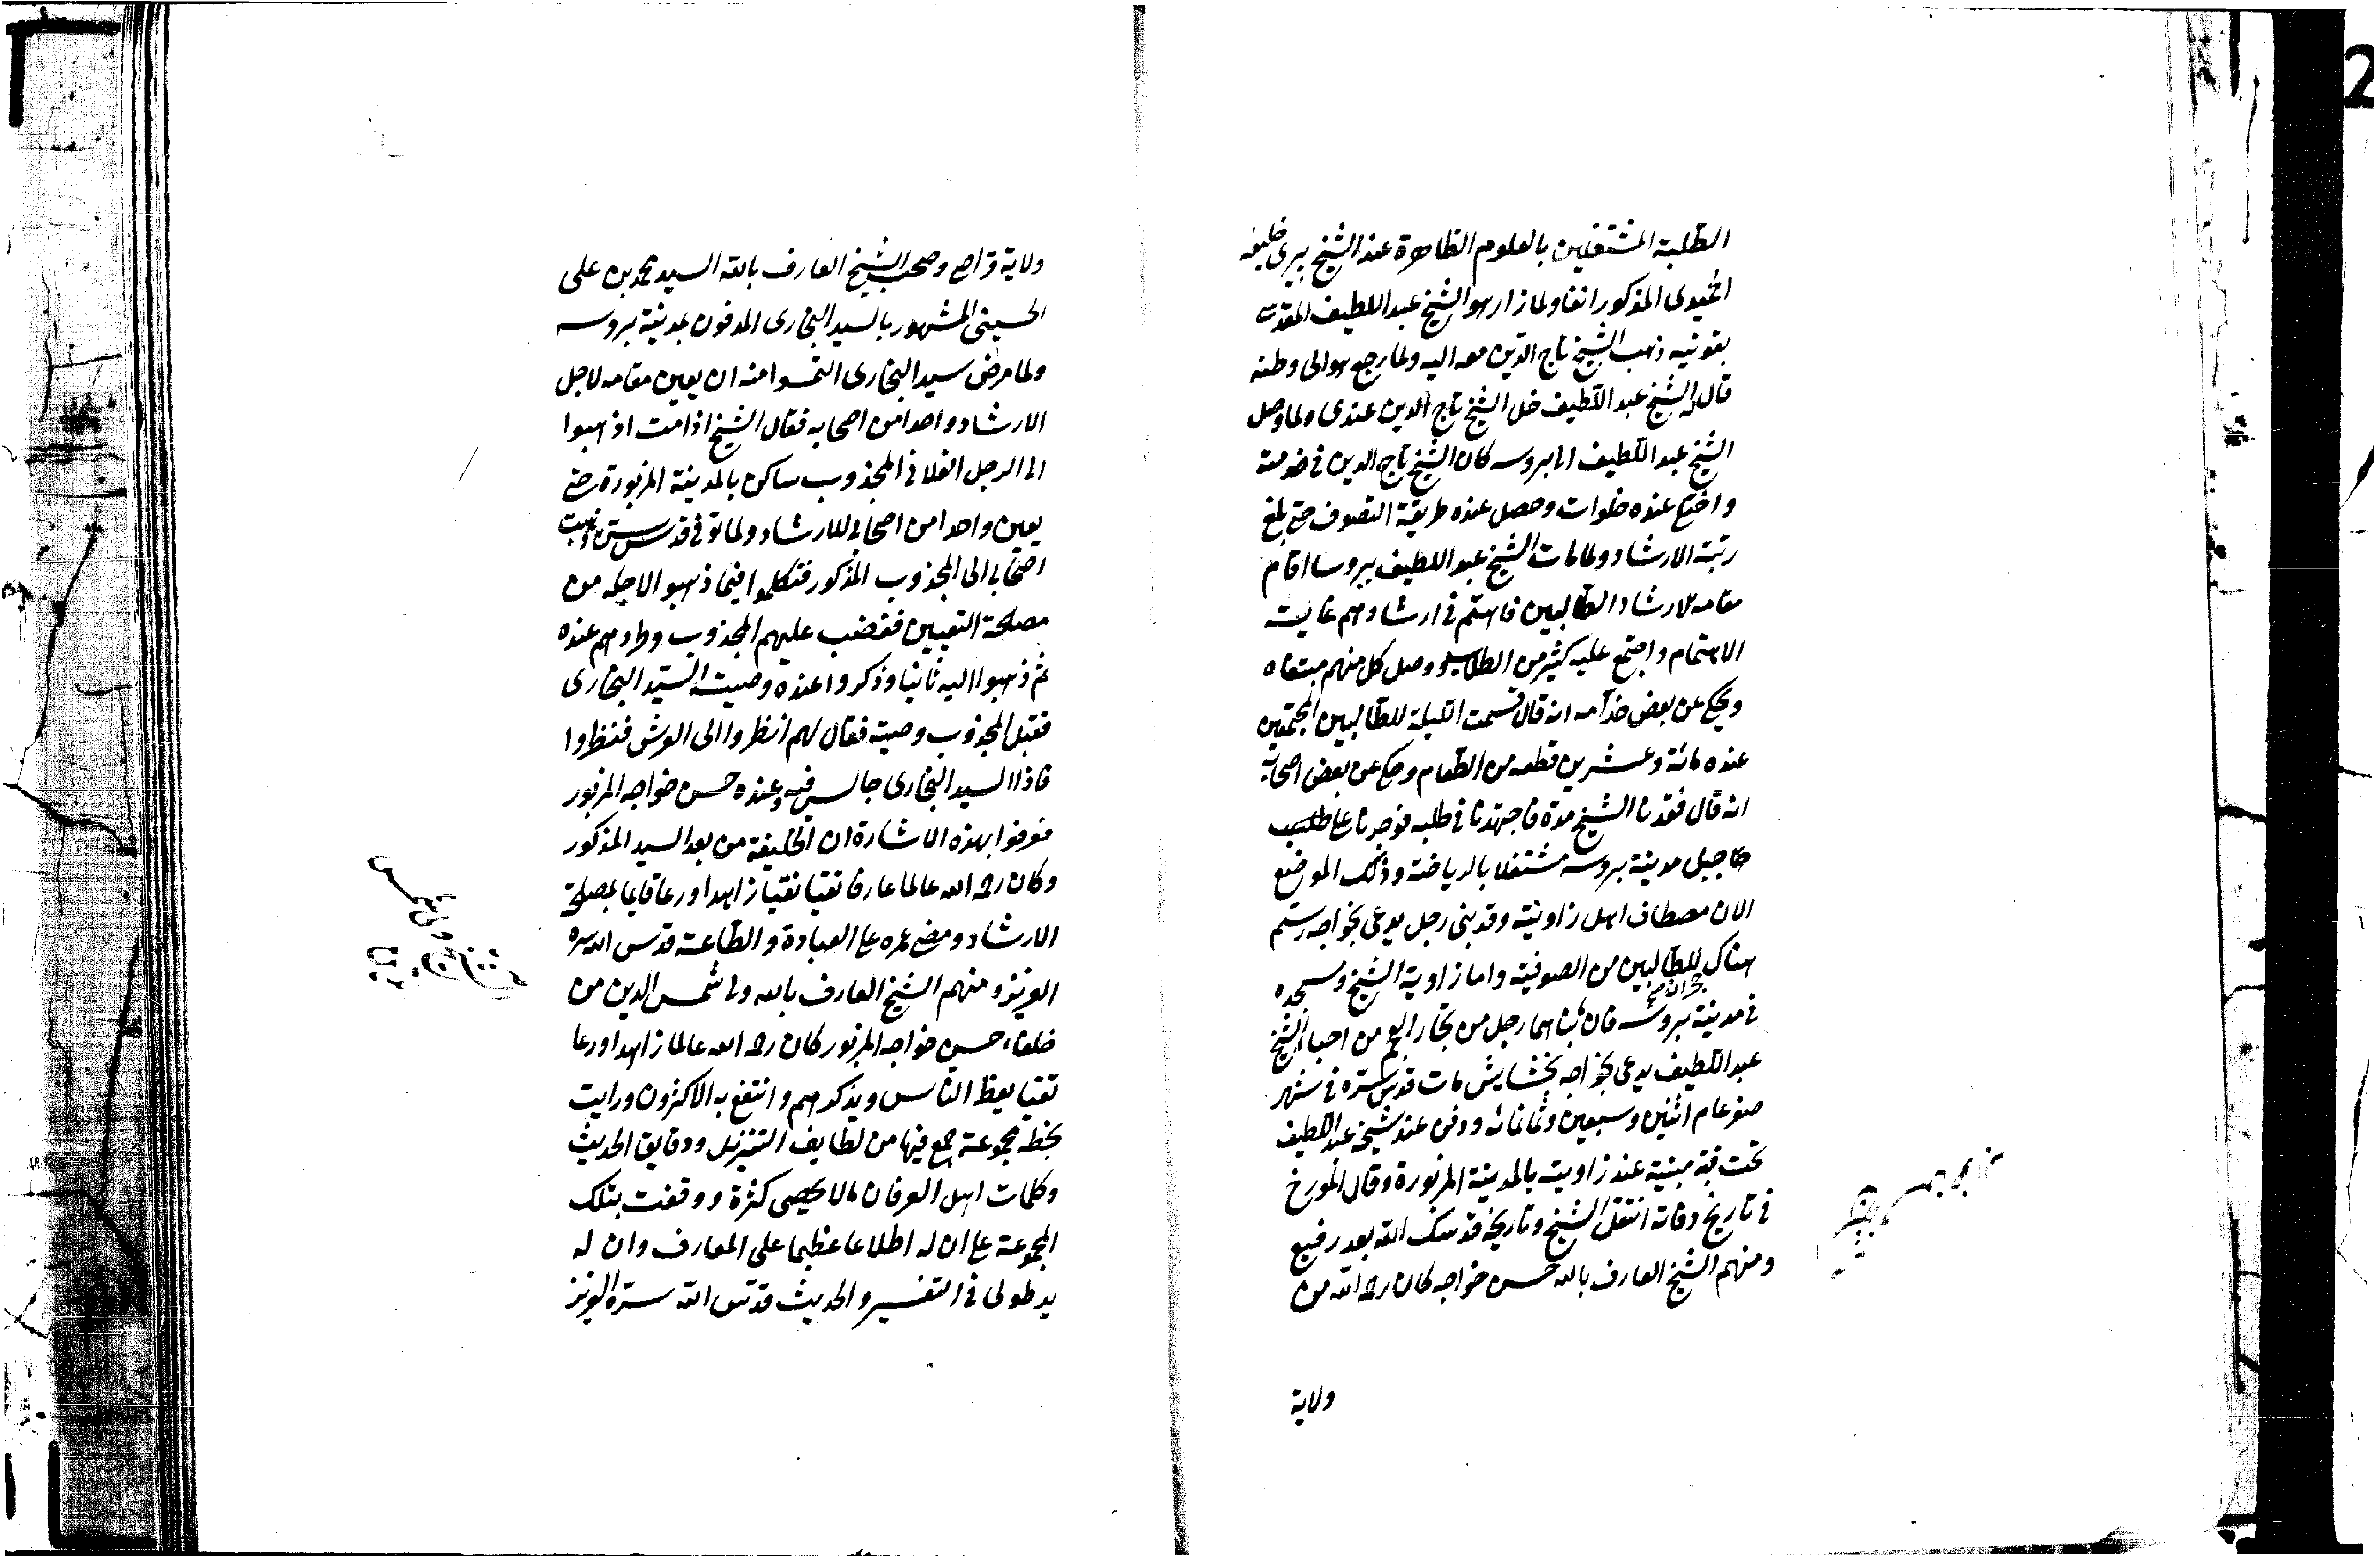 الطلبة المشتغلين بالعلوم الظاهرة عند الشيخ پيرى خليفه
الحميدى المذكور انفا ولما زار هو الشيخ عبد اللطيف المقدسى
بقونيه ذهب الشيخ تاج الدين معه اليه ولما رجع هو الى وطنه
قال له الشيخ عبد اللطيف خل الشيخ تاج الدين عندى ولما وصل
الشيخ عبد اللطيف الى بروسه كان الشيخ تاج الدين فى خدمته
واختلى عنده خلوات وحصل عنده طريقة التصوف حتى بلغ
رتبة الارشاد ولما مات الشيخ عبد اللطيف ببروسا اقام
مقامه للارشاد الطالبين فاهتم فى ارشادهم غاية
الاهتمام واجتمع عليه كثير من الطلاب ووصل كل منهم مبتغاه
وحكى عن بعض خدامه انه قال قسمت الليلة للطالبين المجتمعين
عنده مائة وعشرين قطعه من الطعام وحكى عن بعض اصحابه
انه قال فقدنا الشيخ مدة فاجتهدنا فى طلبه فوجدناه
جبل مدينة بروسه مشتغلا بالرياضة وذلك الموضع
الان مصطاف اهل زاويته وقد بنى رجل يدعى بخواجه رستم
هناك للطالبين من الصوفية واما زاوية الشيخ ومسجده
فى مدينة بروسه فان بناهما رجل من تجار العجم من احباء الشيخ
عبد اللطيف يدعى بخواجه بخشايش مات قدس سره فى شهر
صفر عام اثنين وسبعين وثمانمائه ودفن عند شيخه عبد اللطيف
تحت قبة مبنية عند زاويته بالمدينة المزبورة وقال المورخ
فى تاريخ وفاته انتقل الشيخ وتاريخه قدسك الله بعد رفيع
ومنهم الشيخ العارف بالله حسن خواجه كان رحمه الله من
ولاية
ولاية قراصى وصحب الشيخ العارف بالله السيد محمد بن على
الحسينى المشهور بالسيد البخارى المدفون بمدينة بروسه
ولما مرض سيد البخارى التمسوا منه ان يعين مقامه لاجل
الارشاد واحدا من اصحابه فقال الشيخ اذا مت اذهبوا
الى الرجل الفلانى المجذوب ساكن بالمدينة المزبورة حتى
يعين واحدا من اصحابى للارشاد ولما توفى قدس سره ذهبت
اصحابه الى المجذوب المذكور فتكلموا فيما ذهبوا لاجله من
مصلحة التعيين فغضب عليهم المجذوب وطردهم عنده
ثم ذهبوا اليه ثانيا وذكروا عنده وصيت السيد البخارى
فقبل المجذوب وصيته فقال لهم انظروا الى العرش فنظروا
فاذا السيد البخارى جالس فيه وعنده حسن خواجه المزبور
فعرفوا بهذه الاشارة ان الخليفة من بعد السيد المذكور
وكان رحمه الله عالما عارفا تقيا نقيا زاهدا ورعا قايما بمصلحة
الارشاد ومضى عمره على العبادة والطاعة قدس الله سره
العزيز ومنهم الشيخ العارف بالله ولى شمس الدين من
خلفاء حسن خواجه المزبور كان رحمه الله عالما زاهدا ورعا
تقيا يعظ الناس ويذكرهم وانتفع به الاكثرون ورايت
بخطه مجموعة جمع فيها من لطايف التنزيل ودقايق الحديث
وكلمات اهل العرفان مالا يحصى كثرة ووقفت بتلك
المجموعة على ان له اطلاعا عظيما على المعارف وان له
يد طولى فى التفسير والحديث قدس الله سره العزيز